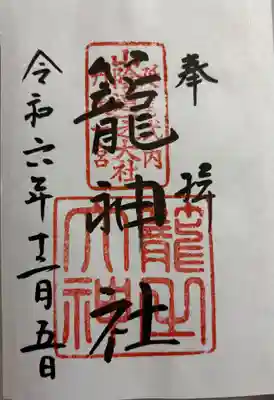 奉拝
籠神社
令和六年十二月五日
式内
之大社
宮
籠之
大神